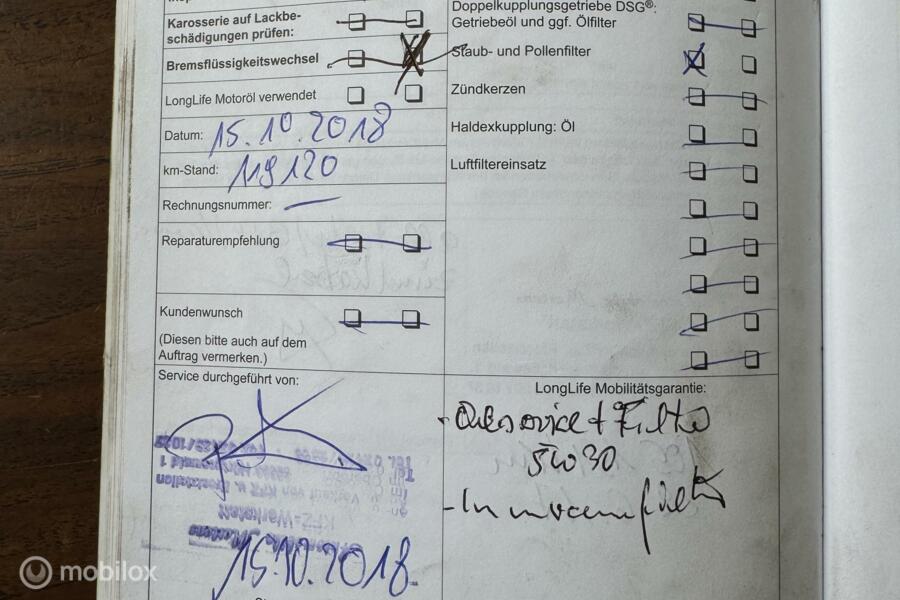 Karosserie auf Lackbe-
schädigungen prüfen:
Bremsflüssigkeitswechsel
LongLife Motoröl verwendet
Datum: 15.10.2018
km-Stand: 119120
Rechnungsnummer:
Reparaturempfehlung
Kundenwunsch
(Diesen bitte auch auf dem
Auftrag vermerken.)
Service durchgeführt von:
KFZ-Werkstatt
15.10.2018
Doppelkupplungsgetriebe DSG®:
Getriebeöl und ggf. Ölfilter
Staub- und Pollenfilter
Zündkerzen
Haldexkupplung: Öl
Luftfiltereinsatz
LongLife Mobilitätsgarantie:
- Ölservice + Filter
5W30
- Innenraumfilter
mobilox